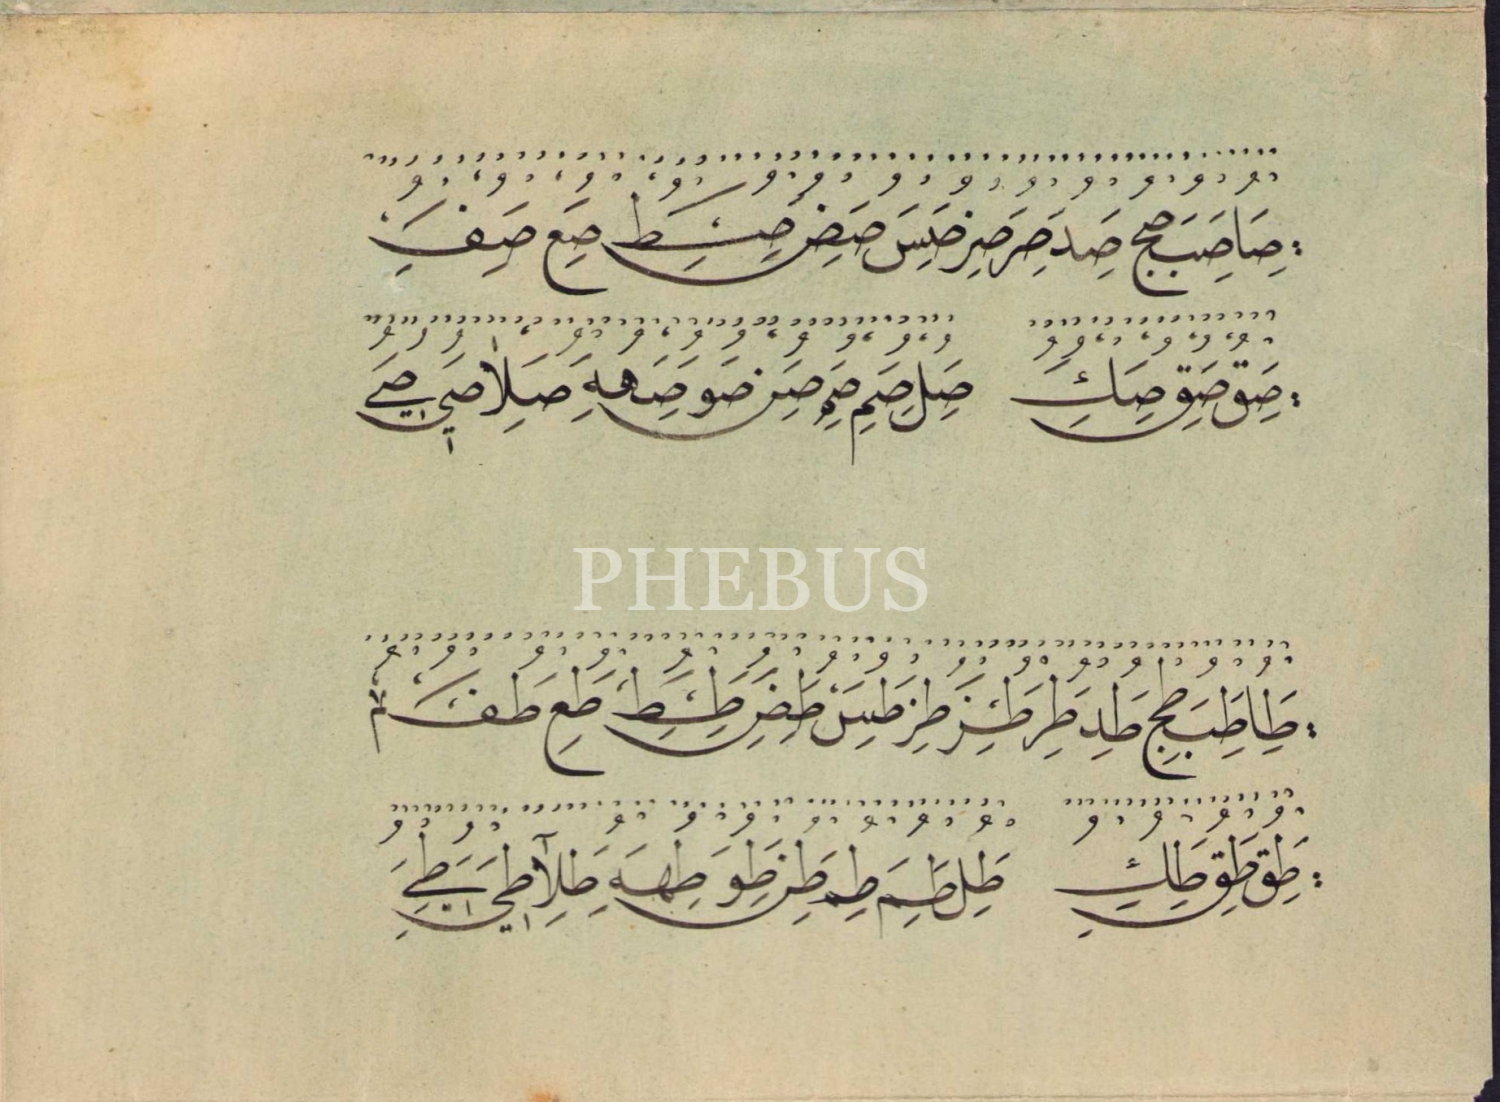 صا صب صج صد صر صز صس صض صط صع صف
صق صق صك صل صم صم صن صو صه صلا صي صے
PHEBUS
طا طب طج طد طر طز طز طس طض طط طع طف
طق طق طك طل طم طم طن طو طه طلا طي طے